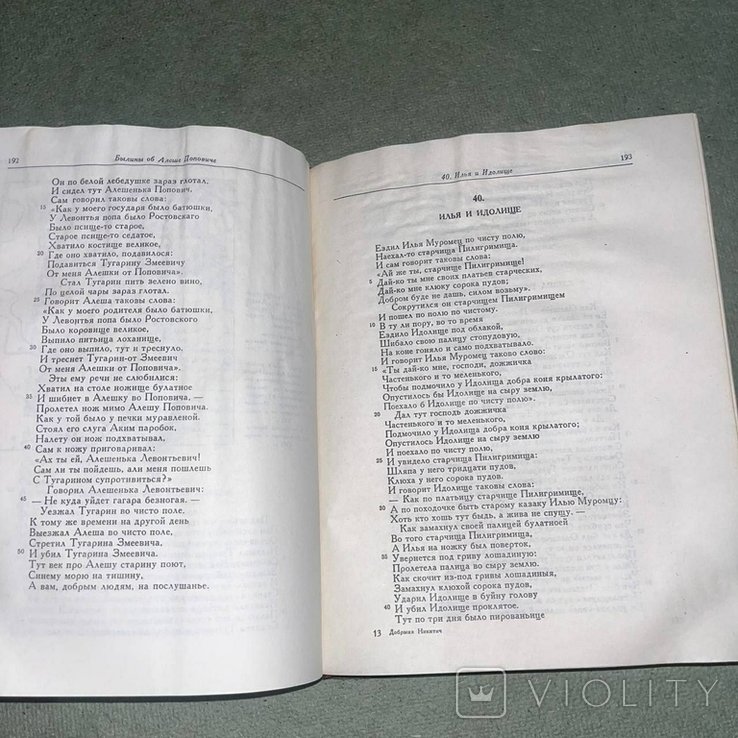 192
Былины об Алеше Поповиче
Он по белой лебедушке зараз глотал.
И сидел тут Алешенька Попович,
Сам говорил таковы слова:
15 «Как у моего государя было батюшки,
У Левонтья попа было Ростовскаго
Было псище-то старое,
Старое псище-то седатое,
Хватило костище великое,
20 Где оно хватило, подавилося:
Подавиться Тугарину Змеевичу
От меня Алешки от Поповича».
Стал Тугарин пить зелено вино,
По целой чары зараз глотал.
25 Говорит Алеша таковы слова:
«Как у моего родителя было батюшки,
У Левонтья попа было Ростовского
Было коровище великое,
Выпило питьица лоханище,
30 Где оно выпило, тут и треснуло.
И треснет Тугарин-от Змеевич
От меня Алешки от Поповича».
Эты ему речи не слюбилися:
Хватил на столе ножище булатное
35 И шибнет в Алешку во Поповича, —
Пролетел нож мимо Алешу Поповича.
Как у той было у печки муравленой,
Стоял его слуга Аким паробок,
Налету он нож подхватывал,
40 Сам к ножу приговаривал:
«Ах ты ей, Алешенька Левонтьевич!
Сам ли ты пойдешь, али меня пошлешь
С Тугарином супротивиться?»
Говорил Алешенька Левонтьевич:
45 — Не куда уйдет гагара безногая. —
Уезжал Тугарин во чисто поле,
К тому же времени на другой день
Выезжал Алеша во чисто поле,
Стретил Тугарина Змеевича,
50 И убил Тугарина Змеевича.
Тут век про Алешу старину поют,
Синему морю на тишину,
А вам, добрым людям, на послушанье.
40. Илья и Идолище
193
40.
ИЛЬЯ И ИДОЛИЩЕ
Ездил Илья Муромец по чисту полю,
Наехал-то старчища Пилигримища,
И сам говорит таковы слова:
«Ай же ты, старчище Пилигримища!
5 Дай-ко ты мне своих платьев старческих,
Дай-ко мне клюку сорока пудов;
Добром буде не дашь, силом возьму».
Сокрутился он старчищем Пилигримищем
И пошел по полю по чистому.
10 В ту ли пору, во то время
Ездило Идолище под облакой,
Шибало свою палицу стопудовую,
На коне гоняло и само подхватывало.
И говорит Илья Муромец таково слово:
15 «Ты дай-ко мне, господи, дожжичка
Частенького и то меленького,
Чтобы подмочило у Идолища добра коня крылатого:
Опустилось бы Идолище на сыру землю,
Поехало б Идолище по чисту полю».
20 Дал тут господь дожжичка
Частенького и то меленького,
Подмочило у Идолища добра коня крылатого;
Опустилось Идолище на сыру землю
И поехало по чисту полю,
25 И увидело старчища Пилигримища.
Шляпа у него тридцати пудов,
Клюха у него сорока пудов.
И говорит Идолище таковы слова:
— Как по платьицу старчище Пилигримище,
30 А по походочке быть старому казаку Илью Муромцу:
Хоть кто хошь тут будь, а жива не спущу. —
Как замахнул своей палицей булатноей
Во того старчища Пилигримища,
А Илья на ножку был поверток,
35 Увернется под гриву лошадиную:
Пролетела палица во сыру землю.
Как скочит из-под гривы лошадиныя,
Замахнул клюхой сорока пудов,
Ударил Идолище в буйну голову
40 И убил Идолище проклятое.
Тут по три дня было пированьице
13 Добрыня Никитич
VIOLITY